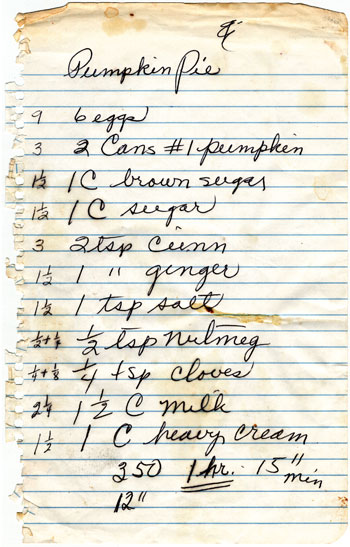 Pumpkin Pie
9 6 eggs
3 2 Cans #1 pumpkin
1½ 1 C brown sugar
1½ 1 C sugar
3 2 tsp Cinn
1½ 1 " ginger
1½ 1 tsp salt
½+¼ ½ tsp Nutmeg
¼+⅛ ¼ tsp cloves
2¼ 1½ C Milk
1½ 1 C heavy cream
350 1 hr. 15" min
12"